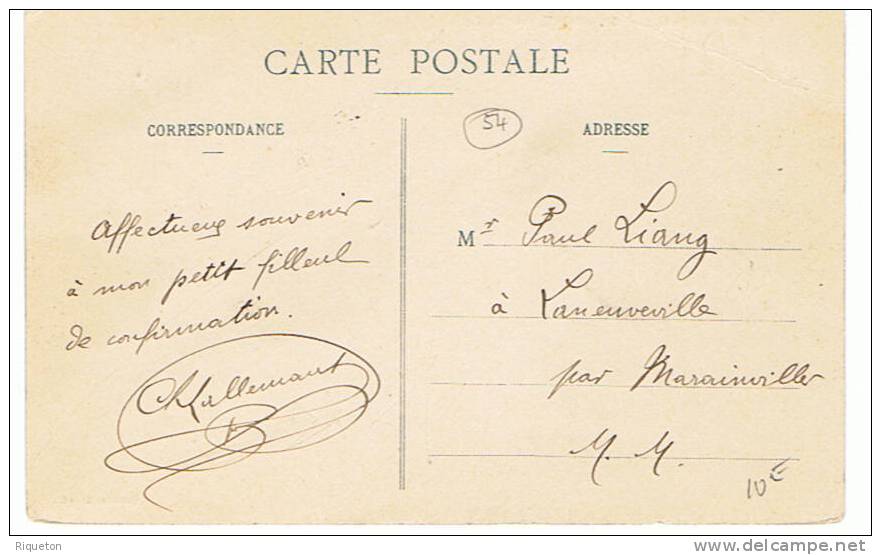 CARTE POSTALE
CORRESPONDANCE
54
ADRESSE
Affectueux souvenir
à mon petit filleul
de confirmation.
Ch Lallemant
Mr Paul Liang
à Laneuveville
par Marainviller
M. M.
10€
Riqueton
www.delcampe.net